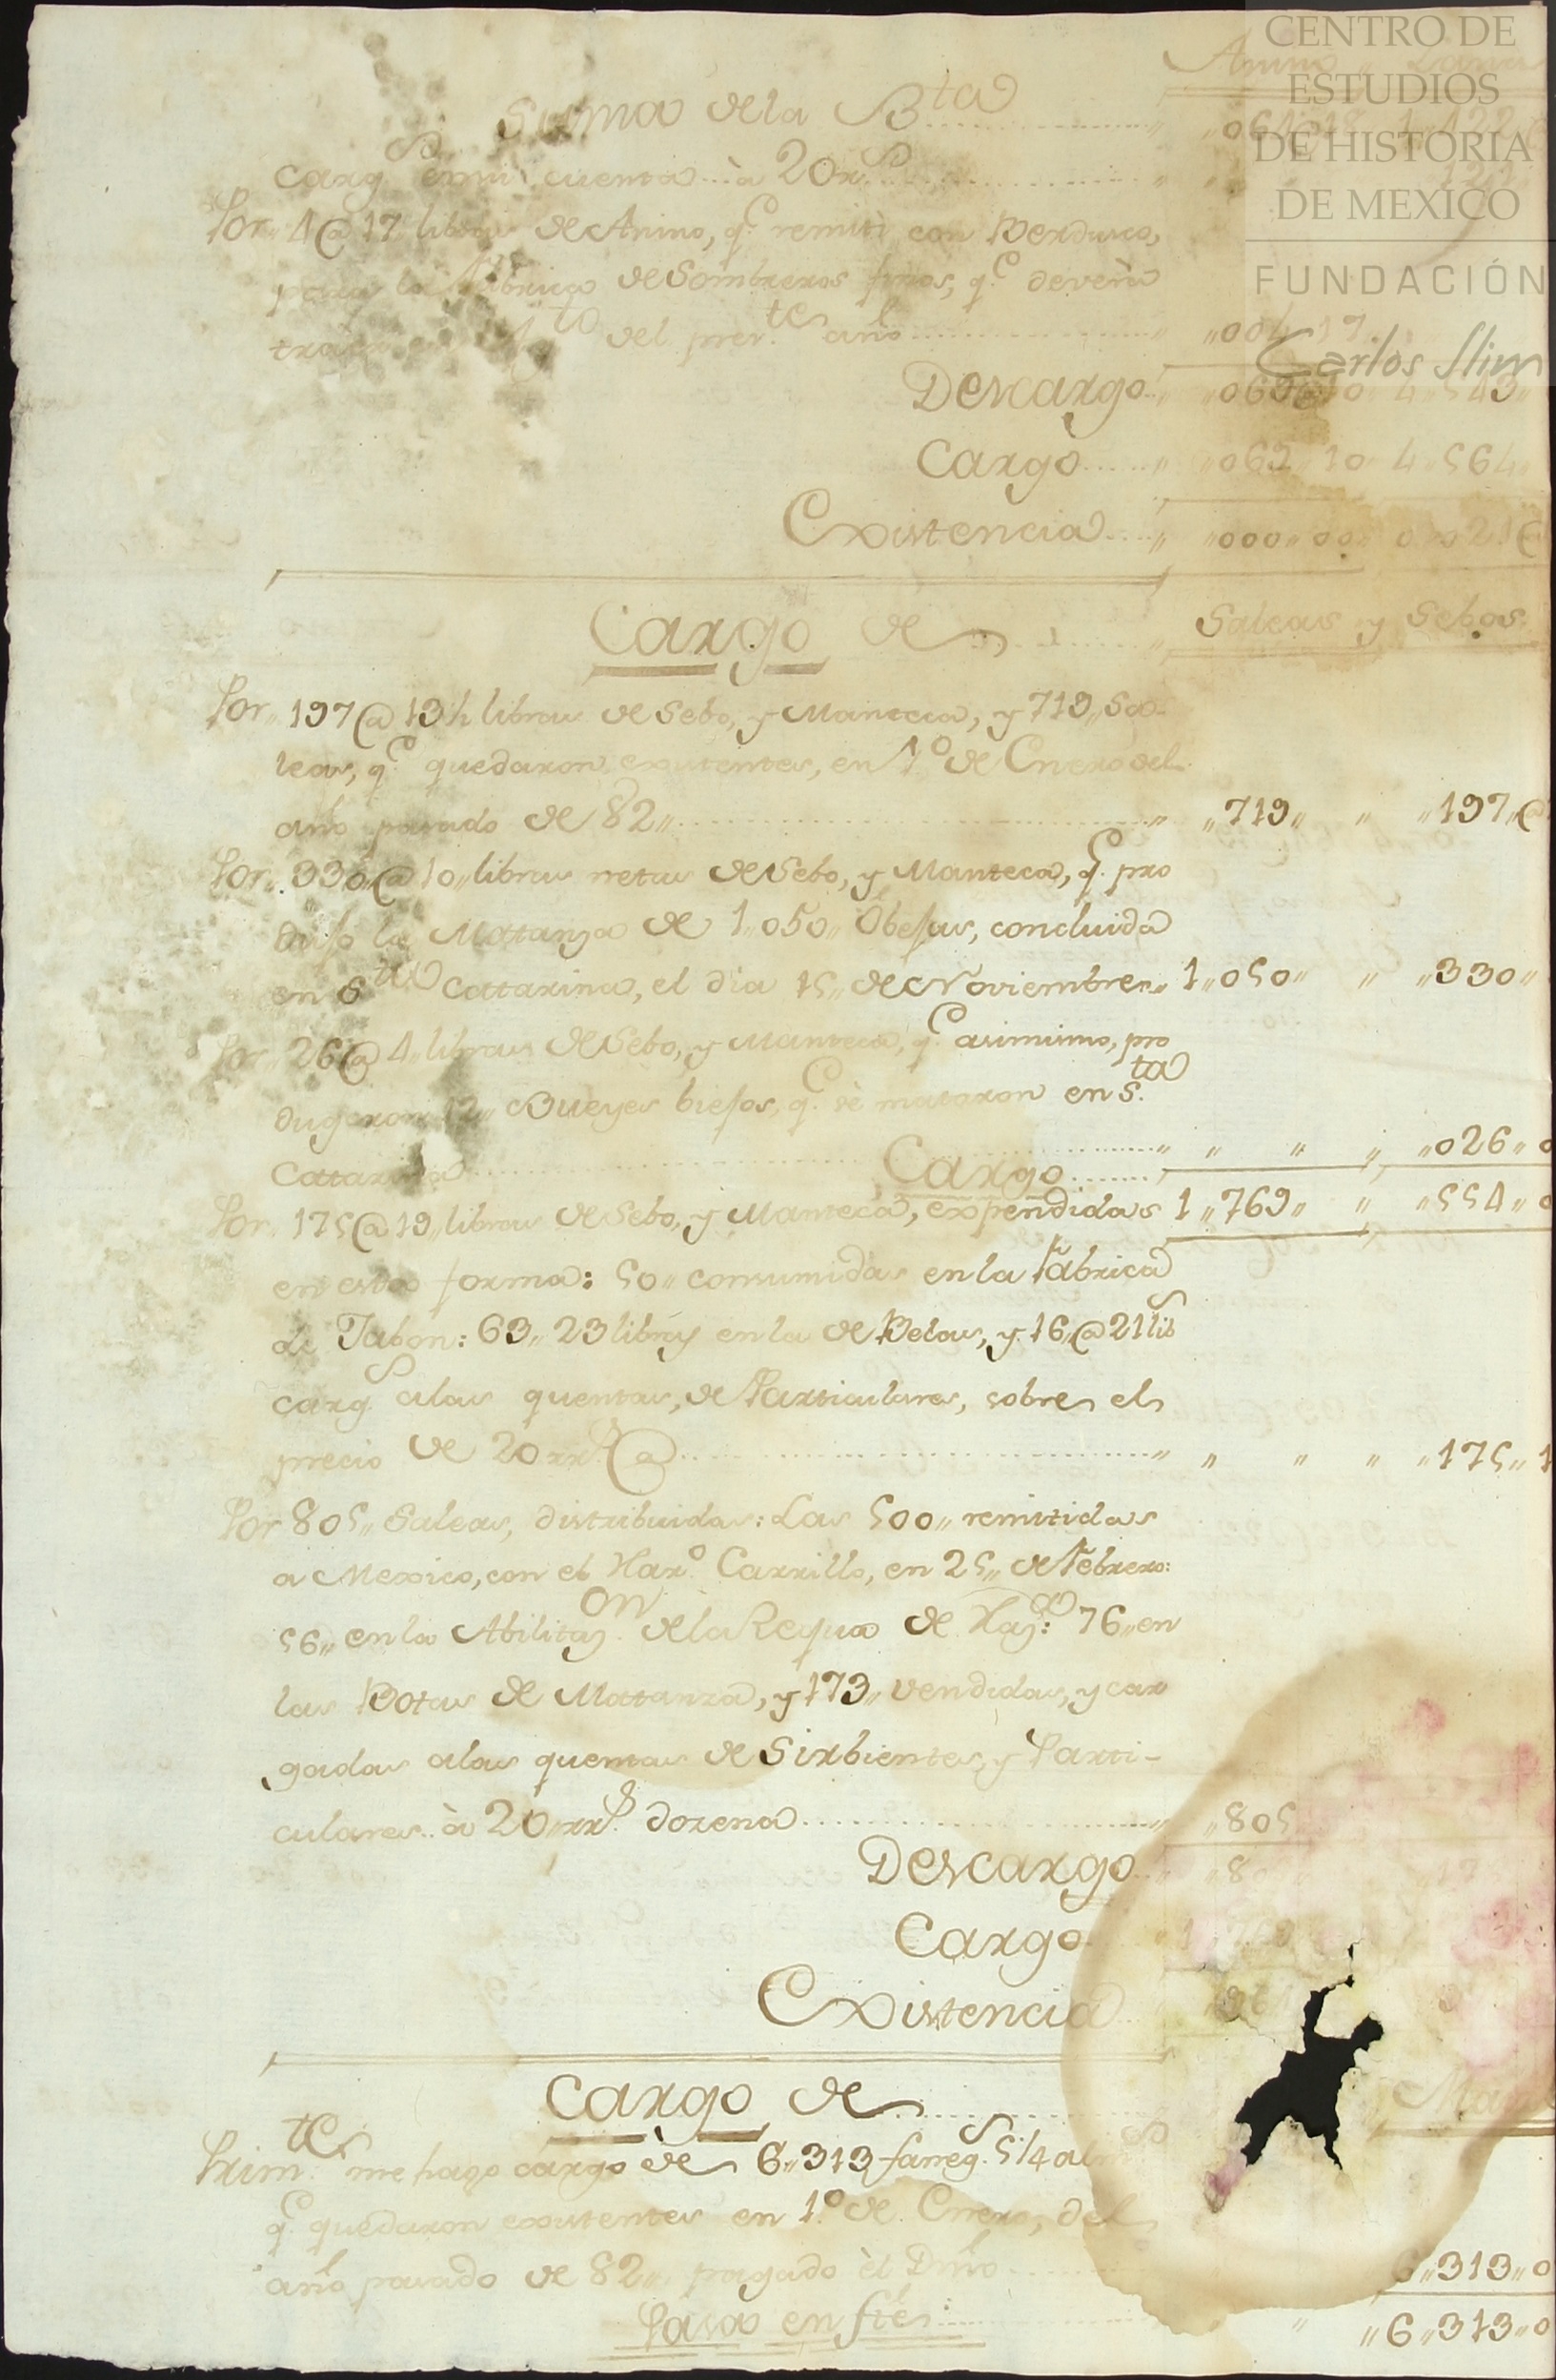 CENTRO DE
ESTUDIOS
DE HISTORIA
DE MEXICO
FUNDACIÓN
Carlos Slim
Anino " Lana
Suma de la B.ta
carg.s à mi cuenta à 20 r.s
Por 4 @ 17 libras de Anino, q.e remiti con Berdusco,
para la Fabrica de Sombreros finos, q.e deverà
del pres.te año " "004 17
Descargo " "069 10 4"543"
Cargo " "069 10 4"564"
Existencia " "000"00" 0"021 @
Cargo de " Saleas y Sebos
Por 197 @ 19 ½ libras de Sebo, y Manteca, y 719" Sa-
leas, q.e quedaron existentes, en 1.o de Enero del
año pasado de 82" " "719" " "197"@
Por 330 @ 10" libras netas de Sebo, y Manteca, q.e pro
dujo la Matanza de 1"050" Obejas, concluida
en S.ta Cattarina, el dia 15" de Noviembre " 1"050" " "330"
Por 26 @ 4" libras de Sebo, y Manteca, q.e asimismo, pro
dugeron 12" Bueyes biejos, q.e sè mataron en S.ta
Cattarina " " " " "026"0
Cargo 1"769" " "554"0
Por 175 @ 19" libras de Sebo, y Manteca, expendidas
en esta forma: 50" consumidas en la Fabrica
de Jabon: 63" 23 libr.s en la de Belas, y 16 @ 21 lib.s
carg.s alas quentas, de Particulares, sobre el
precio de 20 rr.s @ " " " " "175"1
Por 805" Saleas, distribuidas: Las 500" remitidas
a Mexico, con el Har.o Carrillo, en 25" de Febrero:
56" en la Abilitaz.on de la Requa de Haz.da: 76" en
las Botas de Matanza, y 173" vendidas, y car
gadas alas quentas de Sirbientes, y Parti-
culares à 20 rr.s dozena " "805
Descargo "80 17
Cargo 1"769
Existencia
Cargo de Ma
Prim.te me hago cargo de 6"313 faneg.s 5 ¼ alm.s
q.e quedaron existentes en 1.o de Enero, del
año pasado de 82" pagado èl Dmo 6"313"0
Pasa en fte: " "6"313"0